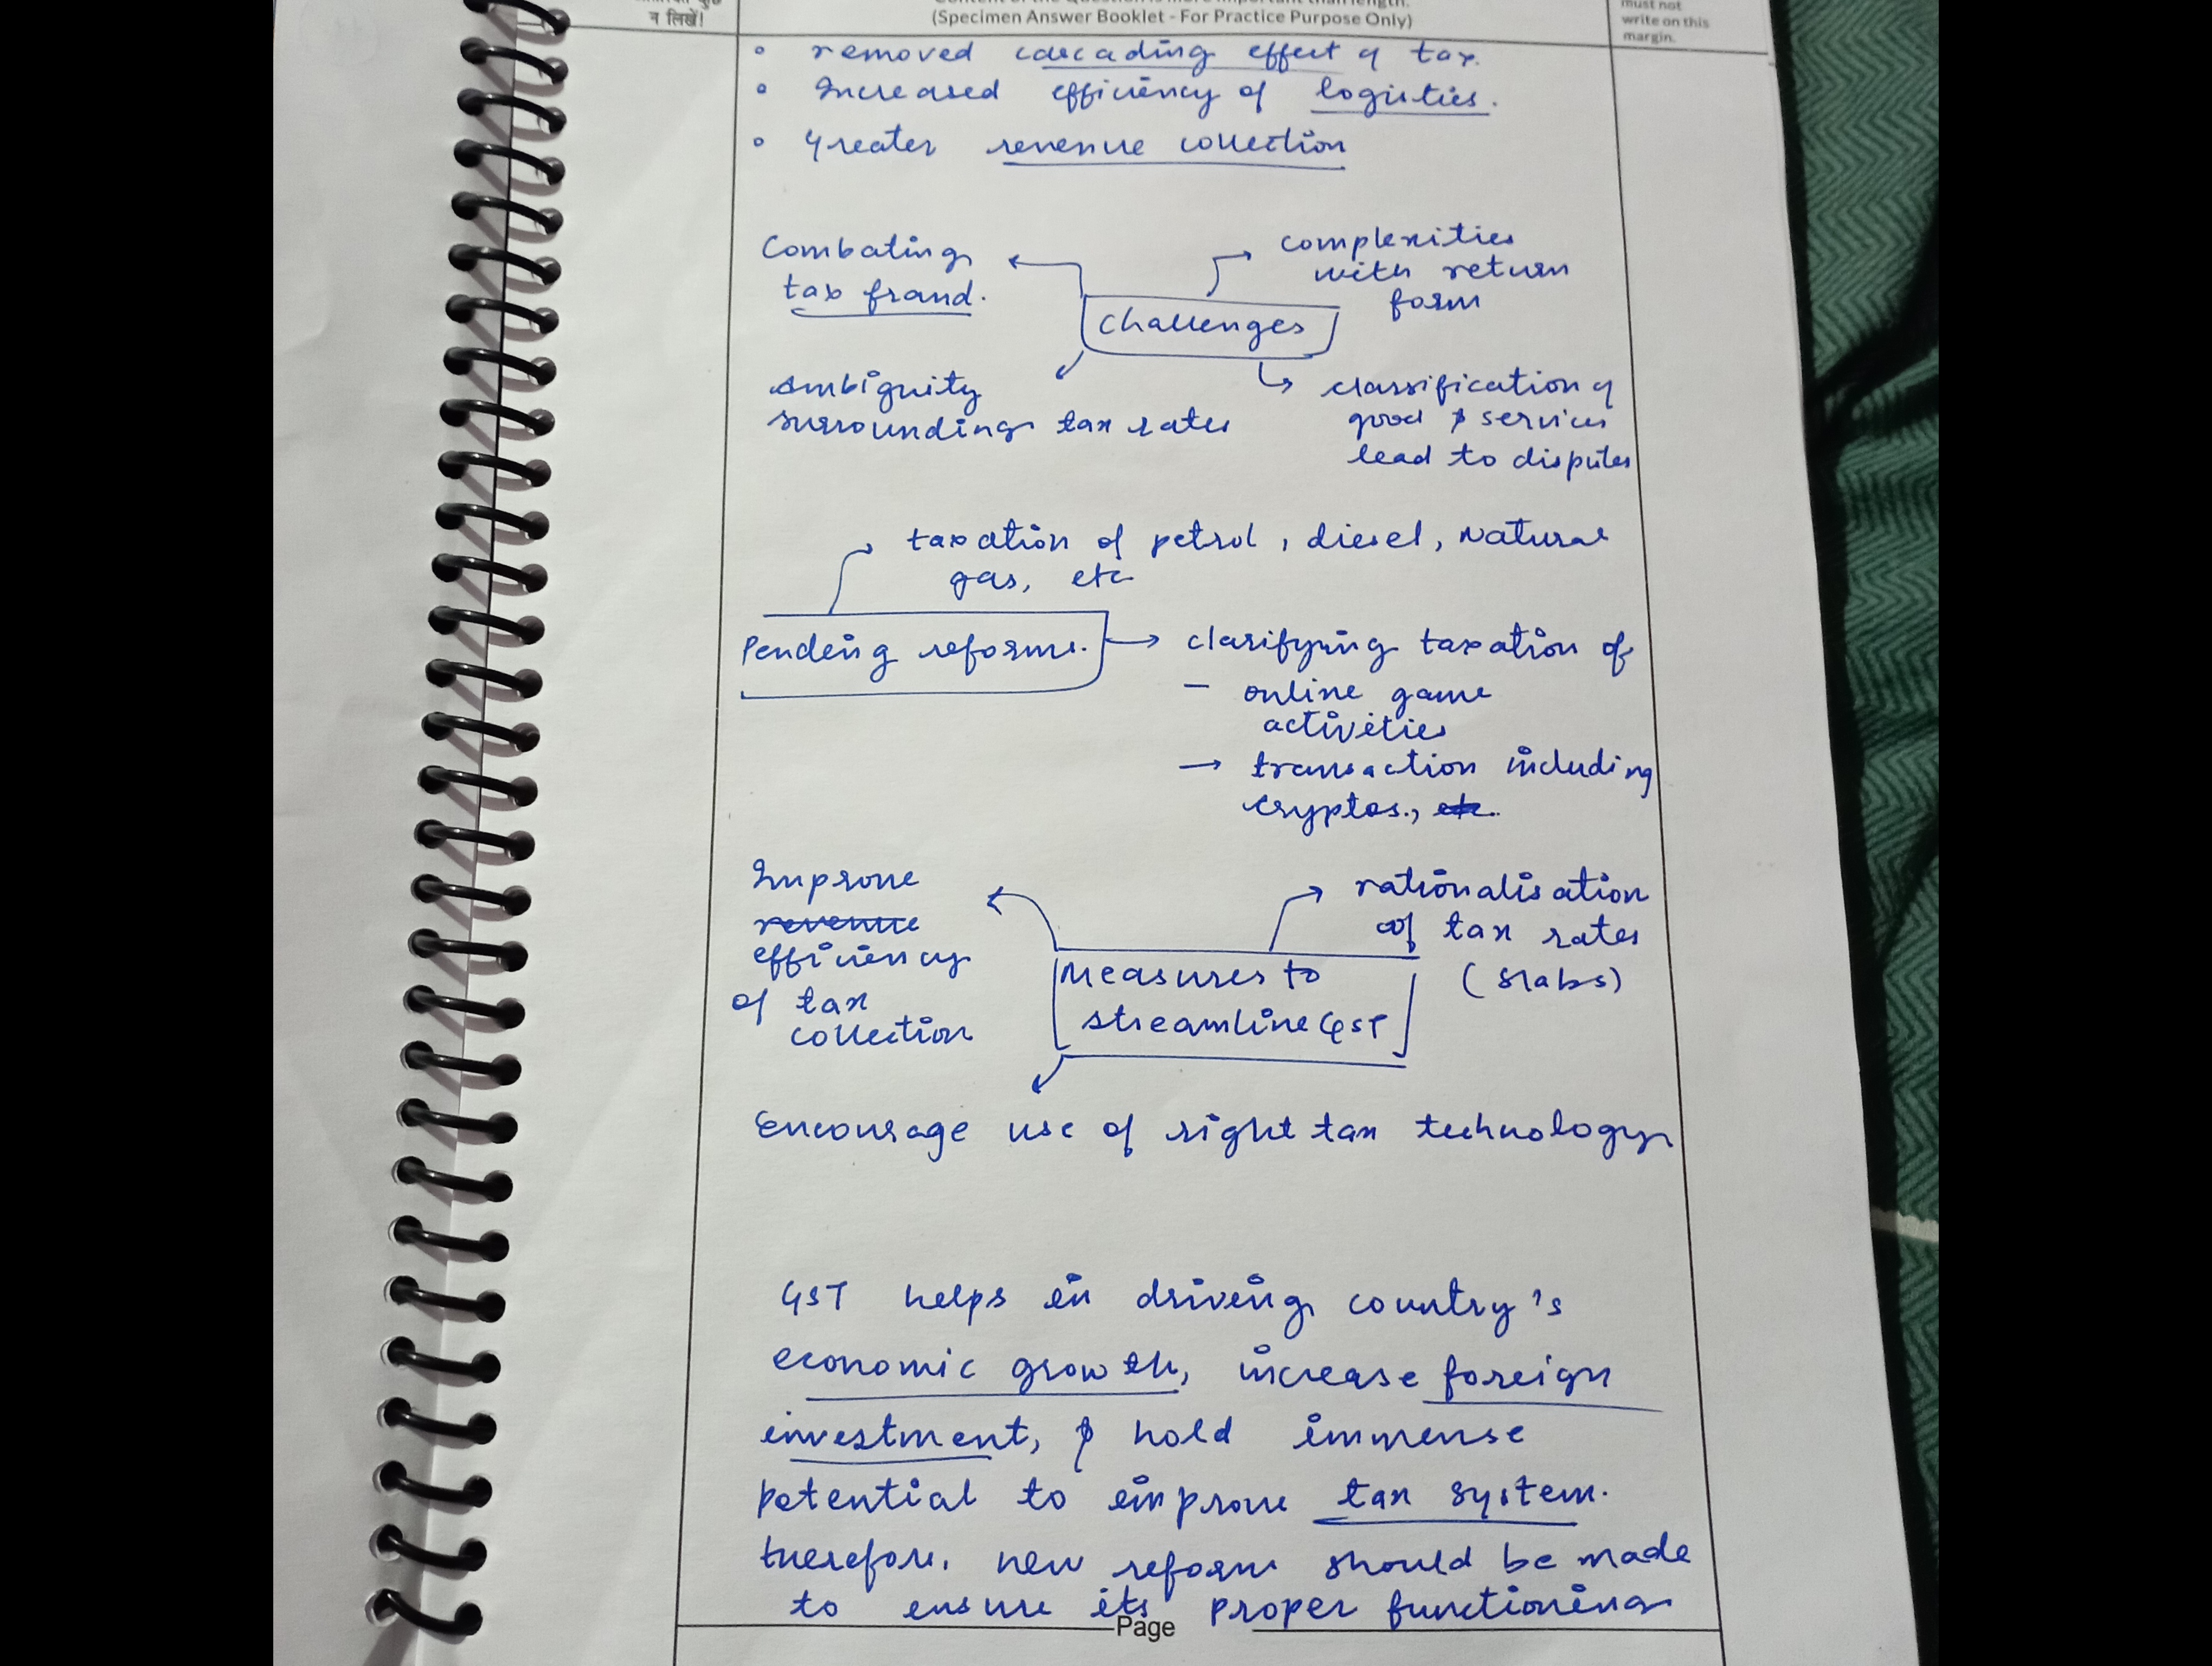 न लिखें!
(Specimen Answer Booklet - For Practice Purpose Only)
must not
write on this
margin.
• removed cascading effect of tax.
• Increased efficiency of logistics.
• Greater revenue collection
Combating
tax fraud.
complexities
with return
form
Challenges
ambiguity
surrounding tax rates
classification of
good & services
lead to disputes
taxation of petrol, diesel, Natural
gas, etc
Pending reforms.
clarifying taxation of
- online game
activities
→ transaction including
cryptos., etc.
Improve
revenue
efficiency
of tax
collection
rationalisation
of tax rates
(slabs)
Measures to
streamline GST
Encourage use of right tax technology
GST helps in driving country's
economic growth, increase foreign
investment, & hold immense
potential to improve tax system.
therefore, new reform should be made
to ensure its proper functioning
Page